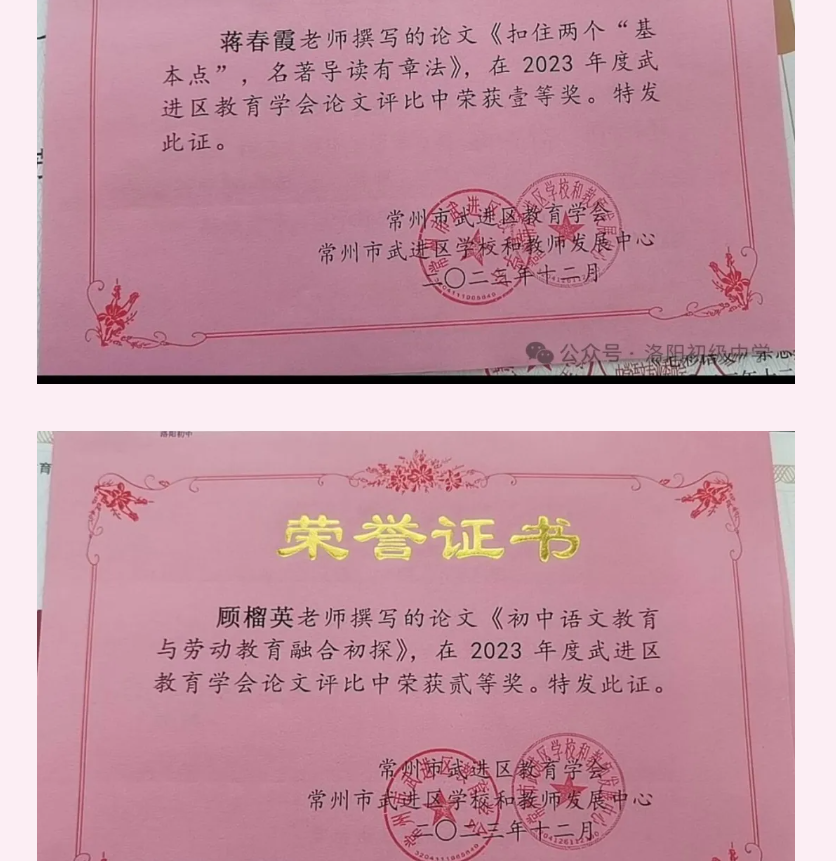 蒋春霞老师撰写的论文《扣住两个“基
本点”，名著导读有章法》，在 2023 年度武
进区教育学会论文评比中荣获壹等奖。特发
此证。
常州市武进区教育学会
常州市武进区学校和教师发展中心
二〇二三年十二月
公众号·洛阳初级中学
洛阳初中
育
荣誉证书
顾榴英老师撰写的论文《初中语文教育
与劳动教育融合初探》，在 2023 年度武进区
教育学会论文评比中荣获贰等奖。特发此证。
常州市武进区教育学会
常州市武进区学校和教师发展中心
二〇二三年十二月